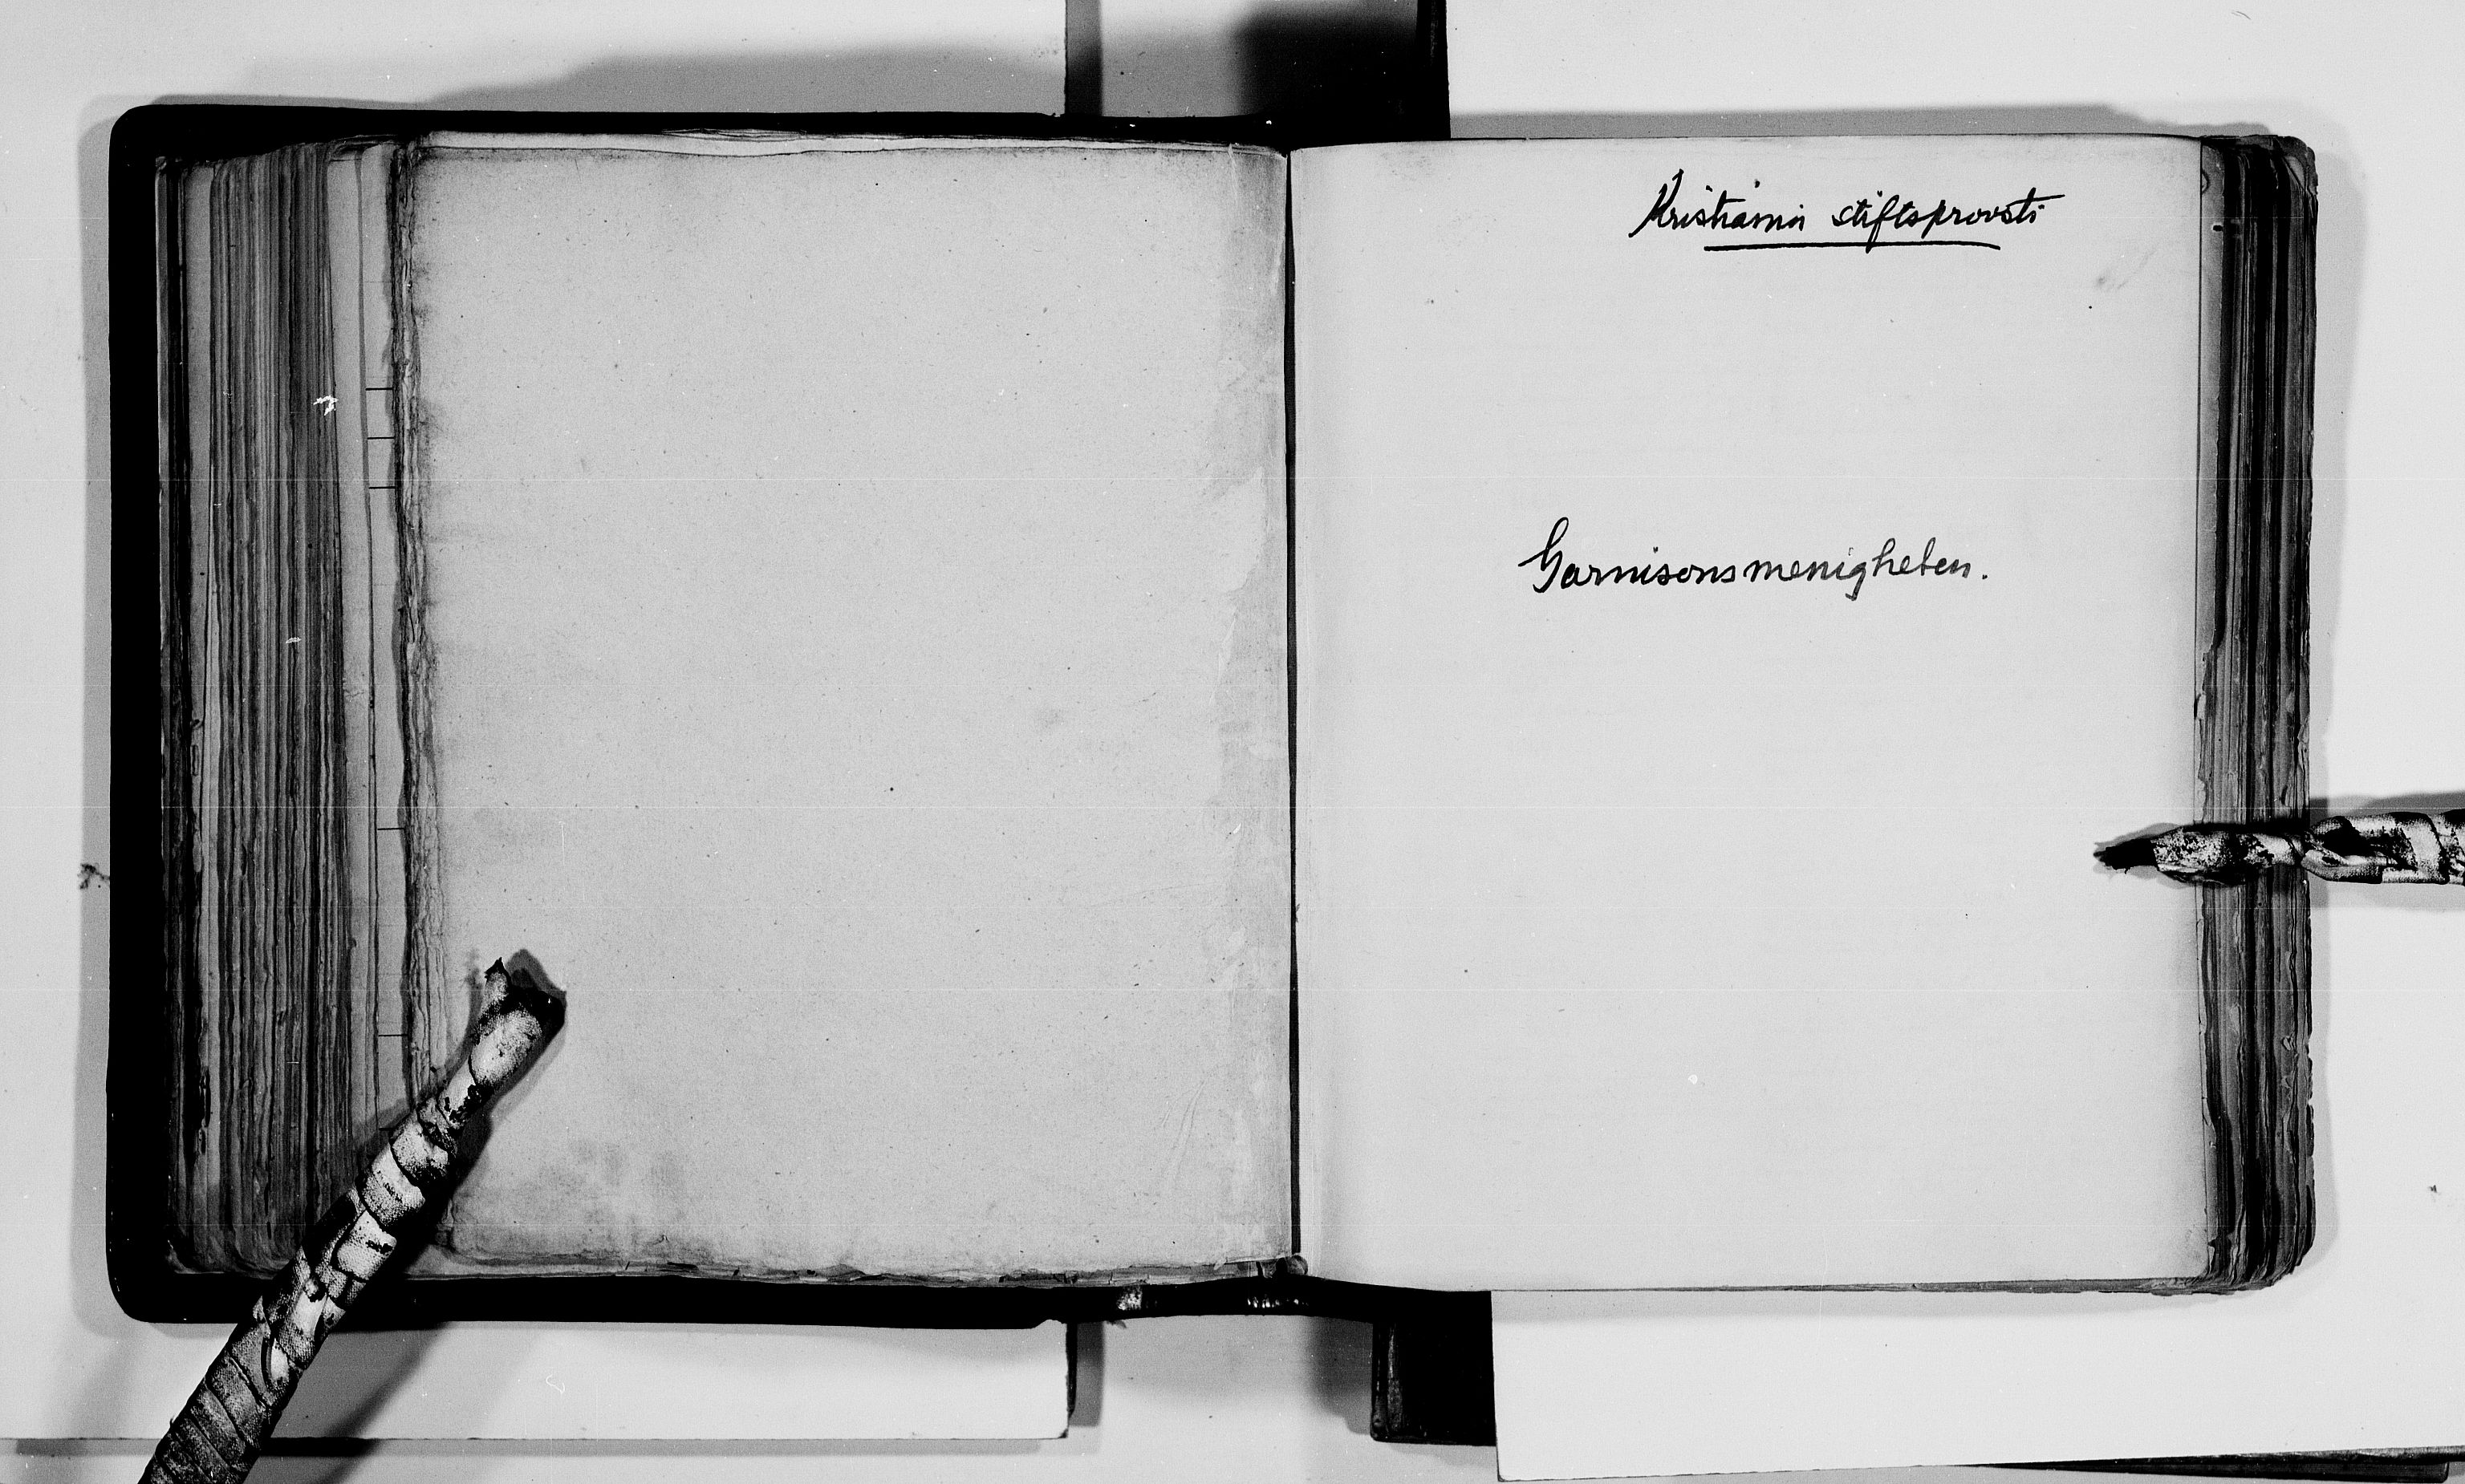 Kristiania stiftsprovsti
Garnisonsmenigheten.